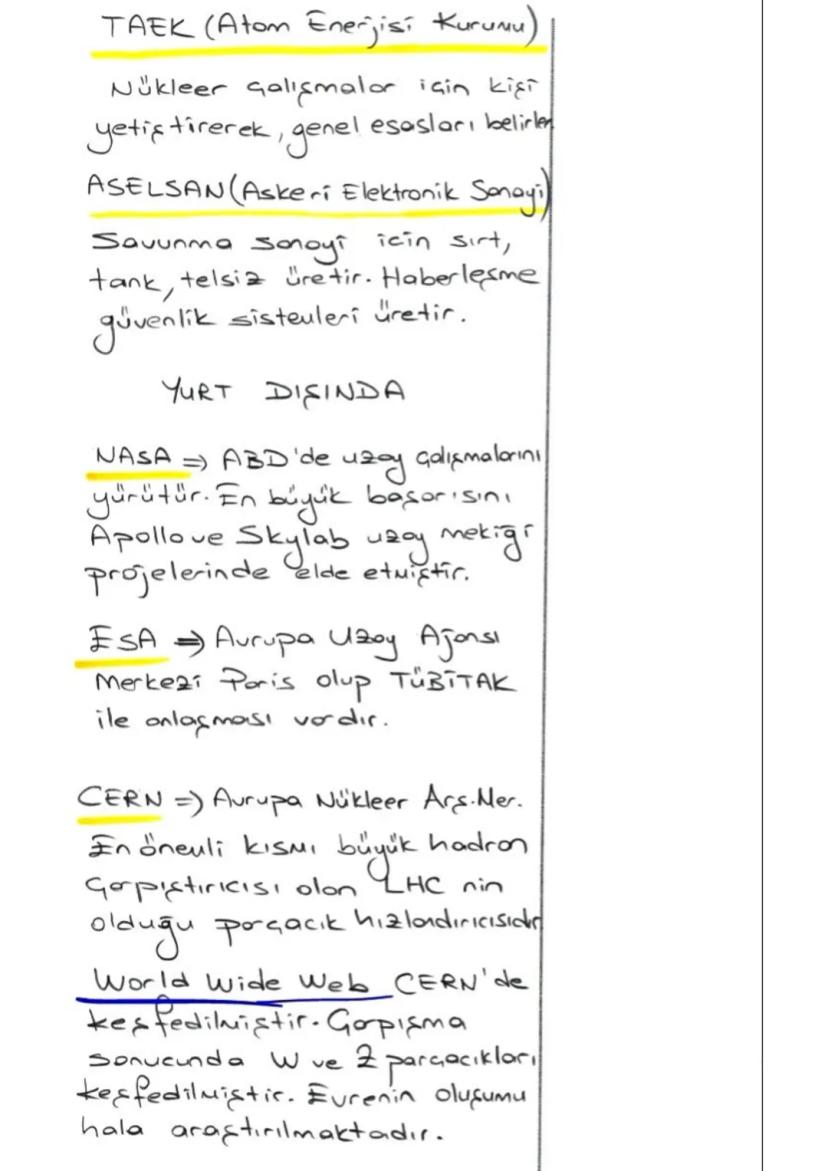 TAEK (Atom Enerjisi Kurumu)
Nükleer çalışmalar için kişi
yetiştirerek, genel esasları belirler
ASELSAN (Askeri Elektronik Sanayi)
Savunma sanayi için sırt,
tank, telsiz üretir. Haberleşme
güvenlik sistemleri üretir.
YURT DIŞINDA
NASA => ABD'de uzay çalışmalarını
yürütür. En büyük başarısını
Apollo ve Skylab uzay mekiği
projelerinde elde etmiştir.
ESA => Avrupa Uzay Ajansı
Merkezi Paris olup TÜBİTAK
ile anlaşması vardır.
CERN => Avrupa Nükleer Arş. Mer.
En önemli kısmı büyük hadron
çarpıştırıcısı olan LHC nin
olduğu parçacık hızlandırıcısıdır
World Wide Web CERN'de
keşfedilmiştir. Çarpışma
sonucunda W ve Z parçacıkları
keşfedilmiştir. Evrenin oluşumu
hala araştırılmaktadır.